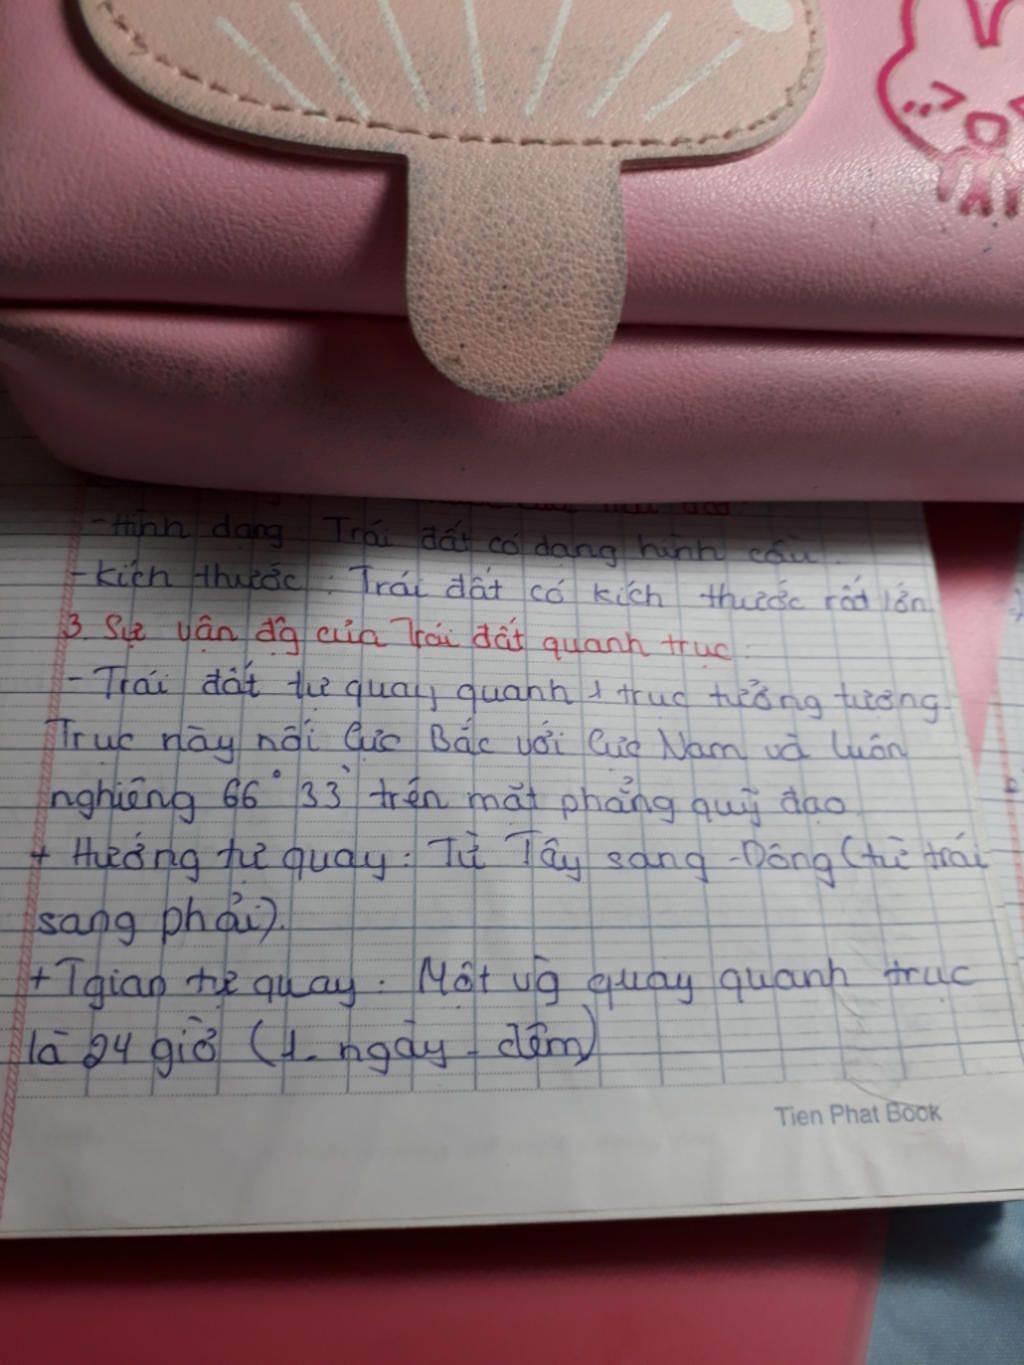 - Hình dạng Trái đất có dạng hình cầu.
- Kích thước: Trái đất có kích thước rất lớn
3. Sự vận đg của Trái đất quanh trục:
- Trái đất tự quay quanh 1 trục tưởng tượng.
Trục này nối Cực Bắc với Cực Nam và luôn
nghiêng 66° 33' trên mặt phẳng quỹ đạo
+ Hướng tự quay: Từ Tây sang Đông (từ trái
sang phải).
+ Tgian tự quay: Một vg quay quanh trục
là 24 giờ (1 ngày - đêm)
Tien Phat Book